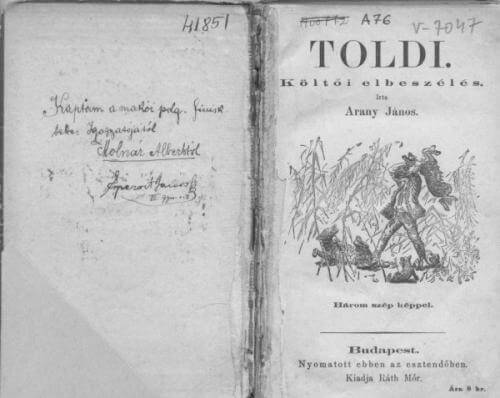 41851
Kaptam a makói polg. fiúisk
Igazgatójától
Molnár Alberttől
A00712 A76
V-7047
TOLDI.
Költői elbeszélés.
Irta
Arany János.
Három szép képpel.
Budapest.
Nyomatott ebben az esztendőben.
Kiadja Ráth Mór.
Ára 8 kr.